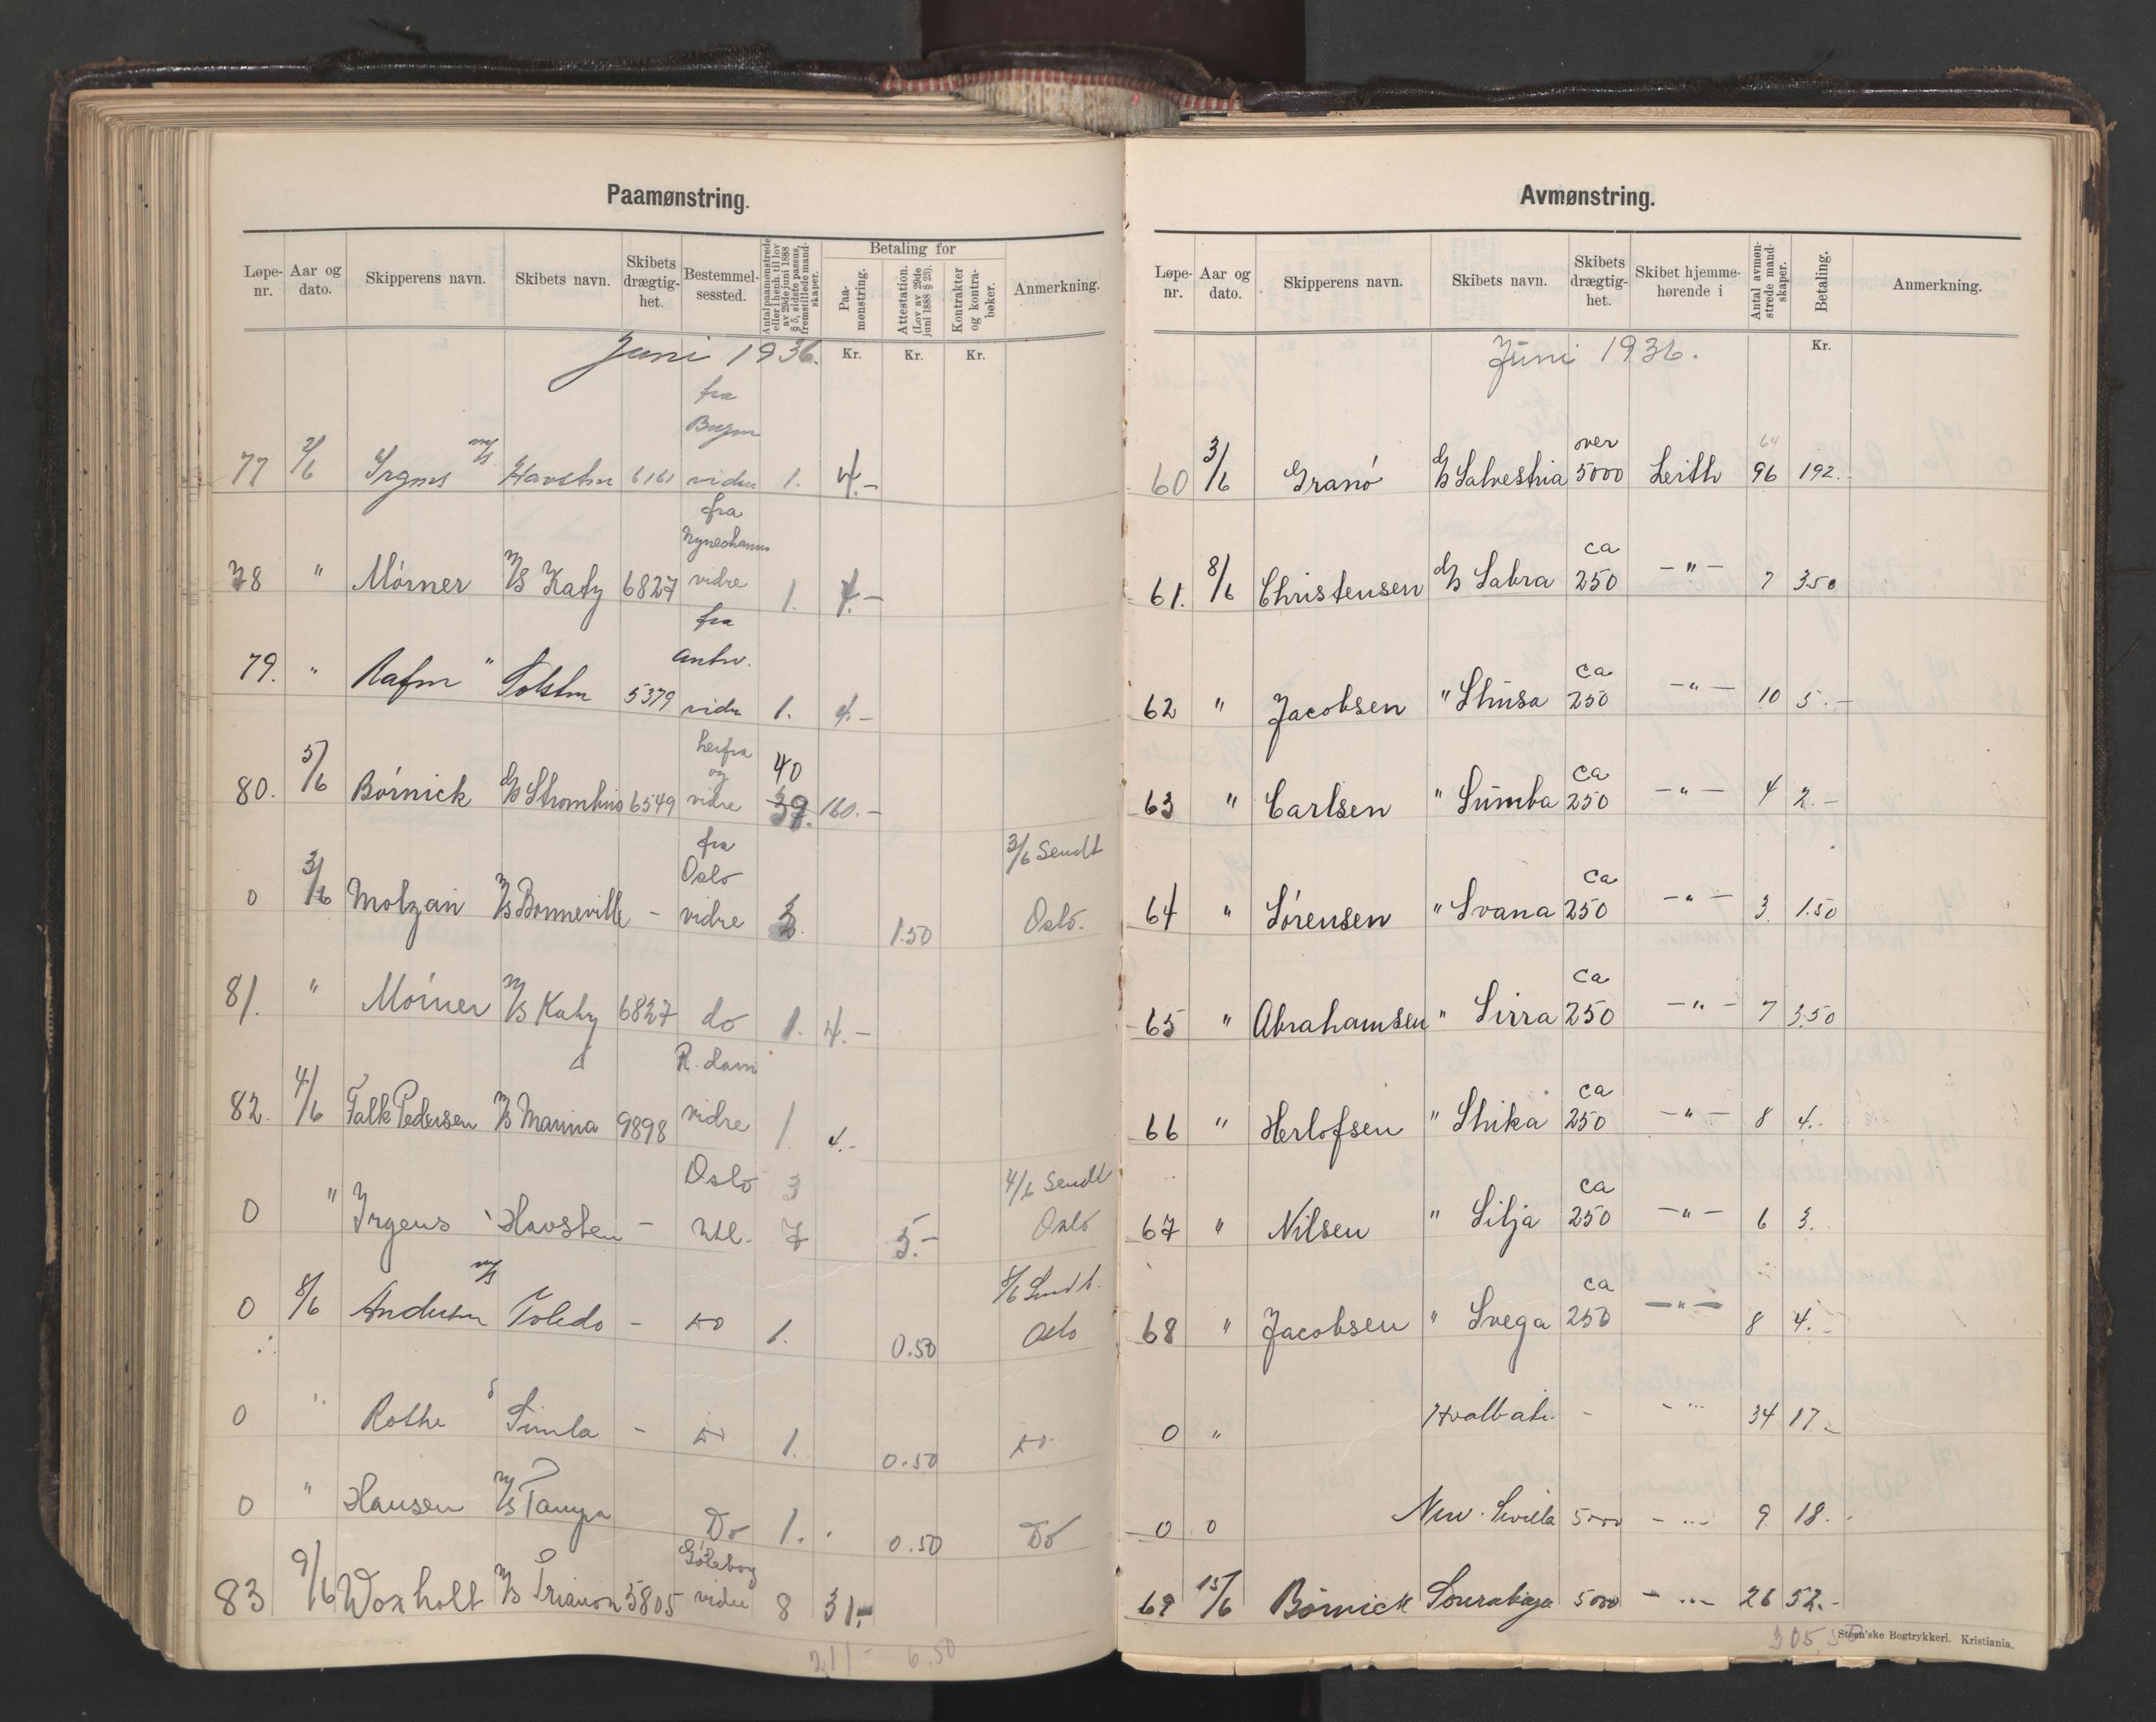 Paamønstring.
Løpe-nr. Aar og dato. Skipperens navn. Skibets navn. Skibets drægtig-het. Bestemmel-sessted. Antal paamønstrede eller i henh. til lov av 29de juni 1888 § 5, sidste passus, fremstillede mand-skaper. Betaling for Paa-mønstring. Attestation. (Lov av 29de juni 1888 § 23). Kontrakter og kontra-bøker. Anmerkning.
Juni 1936. Kr. Kr. Kr.
fra
77 2/6 Irgens m/s Havsten 6161 vidre 1. 4.-
fra
Nyneshamn
78 " Mörner M/S Katy 6827 vidre 1. 4.-
fra
Antw.
79. " Rafen " Solsten 5379 vidre 1. 4.-
herfra
og 40
80. 5/6 Börnick D/S Strombus 6549 vidre 39. 160.-
fra 3/6 Sendt
Oslo
0 3/6 Molzan M/S Bonneville - vidre 3. 1.50 Oslo.
81. " Mörner M/S Katy 6827 do 1. 4.-
R.dam
82. 4/6 Falk Pedersen M/S Marina 9898 vidre 1. 4.-
Oslo 3 4/6 Sendt
0 " Irgens " Havsten - Utl. 7 5.- Oslo
8/6 Sendt.
0 8/6 Andersen m/s Toledo - do 1. 0.50 Oslo
0 " Rothe " Simla - do 1. 0.50 do
0 " Hansen M/S Tampa Do 1. 0.50 Do
Göteborg
83 9/6 Woxholt M/S Trianon 5805 vidre 8 31.-
211- 6.50
Avmønstring.
Løpe-nr. Aar og dato. Skipperens navn. Skibets navn. Skibets drægtig-het. Skibet hjemme-hørende i Antal avmøn-strede mand-skaper. Betaling. Anmerkning.
Juni 1936. Kr.
over 64
60 3/6 Granö D/S Salvestria 5000 Leith 96 192.-
ca
61. 8/6 Christensen D/S Sabra 250 -"- 7 3.50
ca
62 " Jacobsen " Shusa 250 -"- 10 5.-
ca
63 " Carlsen " Sumba 250 -"- 4 2.-
ca
64 " Sörensen " Svana 250 -"- 3 1.50
ca
65 " Abrahamsen " Sirra 250 -"- 7 3.50
ca
66 " Herlofsen " Shika 250 -"- 8 4.-
ca
67 " Nilsen " Silja 250 -"- 6 3.
ca
68 " Jacobsen " Svega 250 -"- 8 4.-
0 " Hvalbåt. - -"- 34 17.-
0 0 New Sevilla 5000 -"- 9 18.-
69 15/6 Börnick Sourabaya 5000 -"- 26 52.-
305 50
Steen'ske Bogtrykkeri. Kristiania.